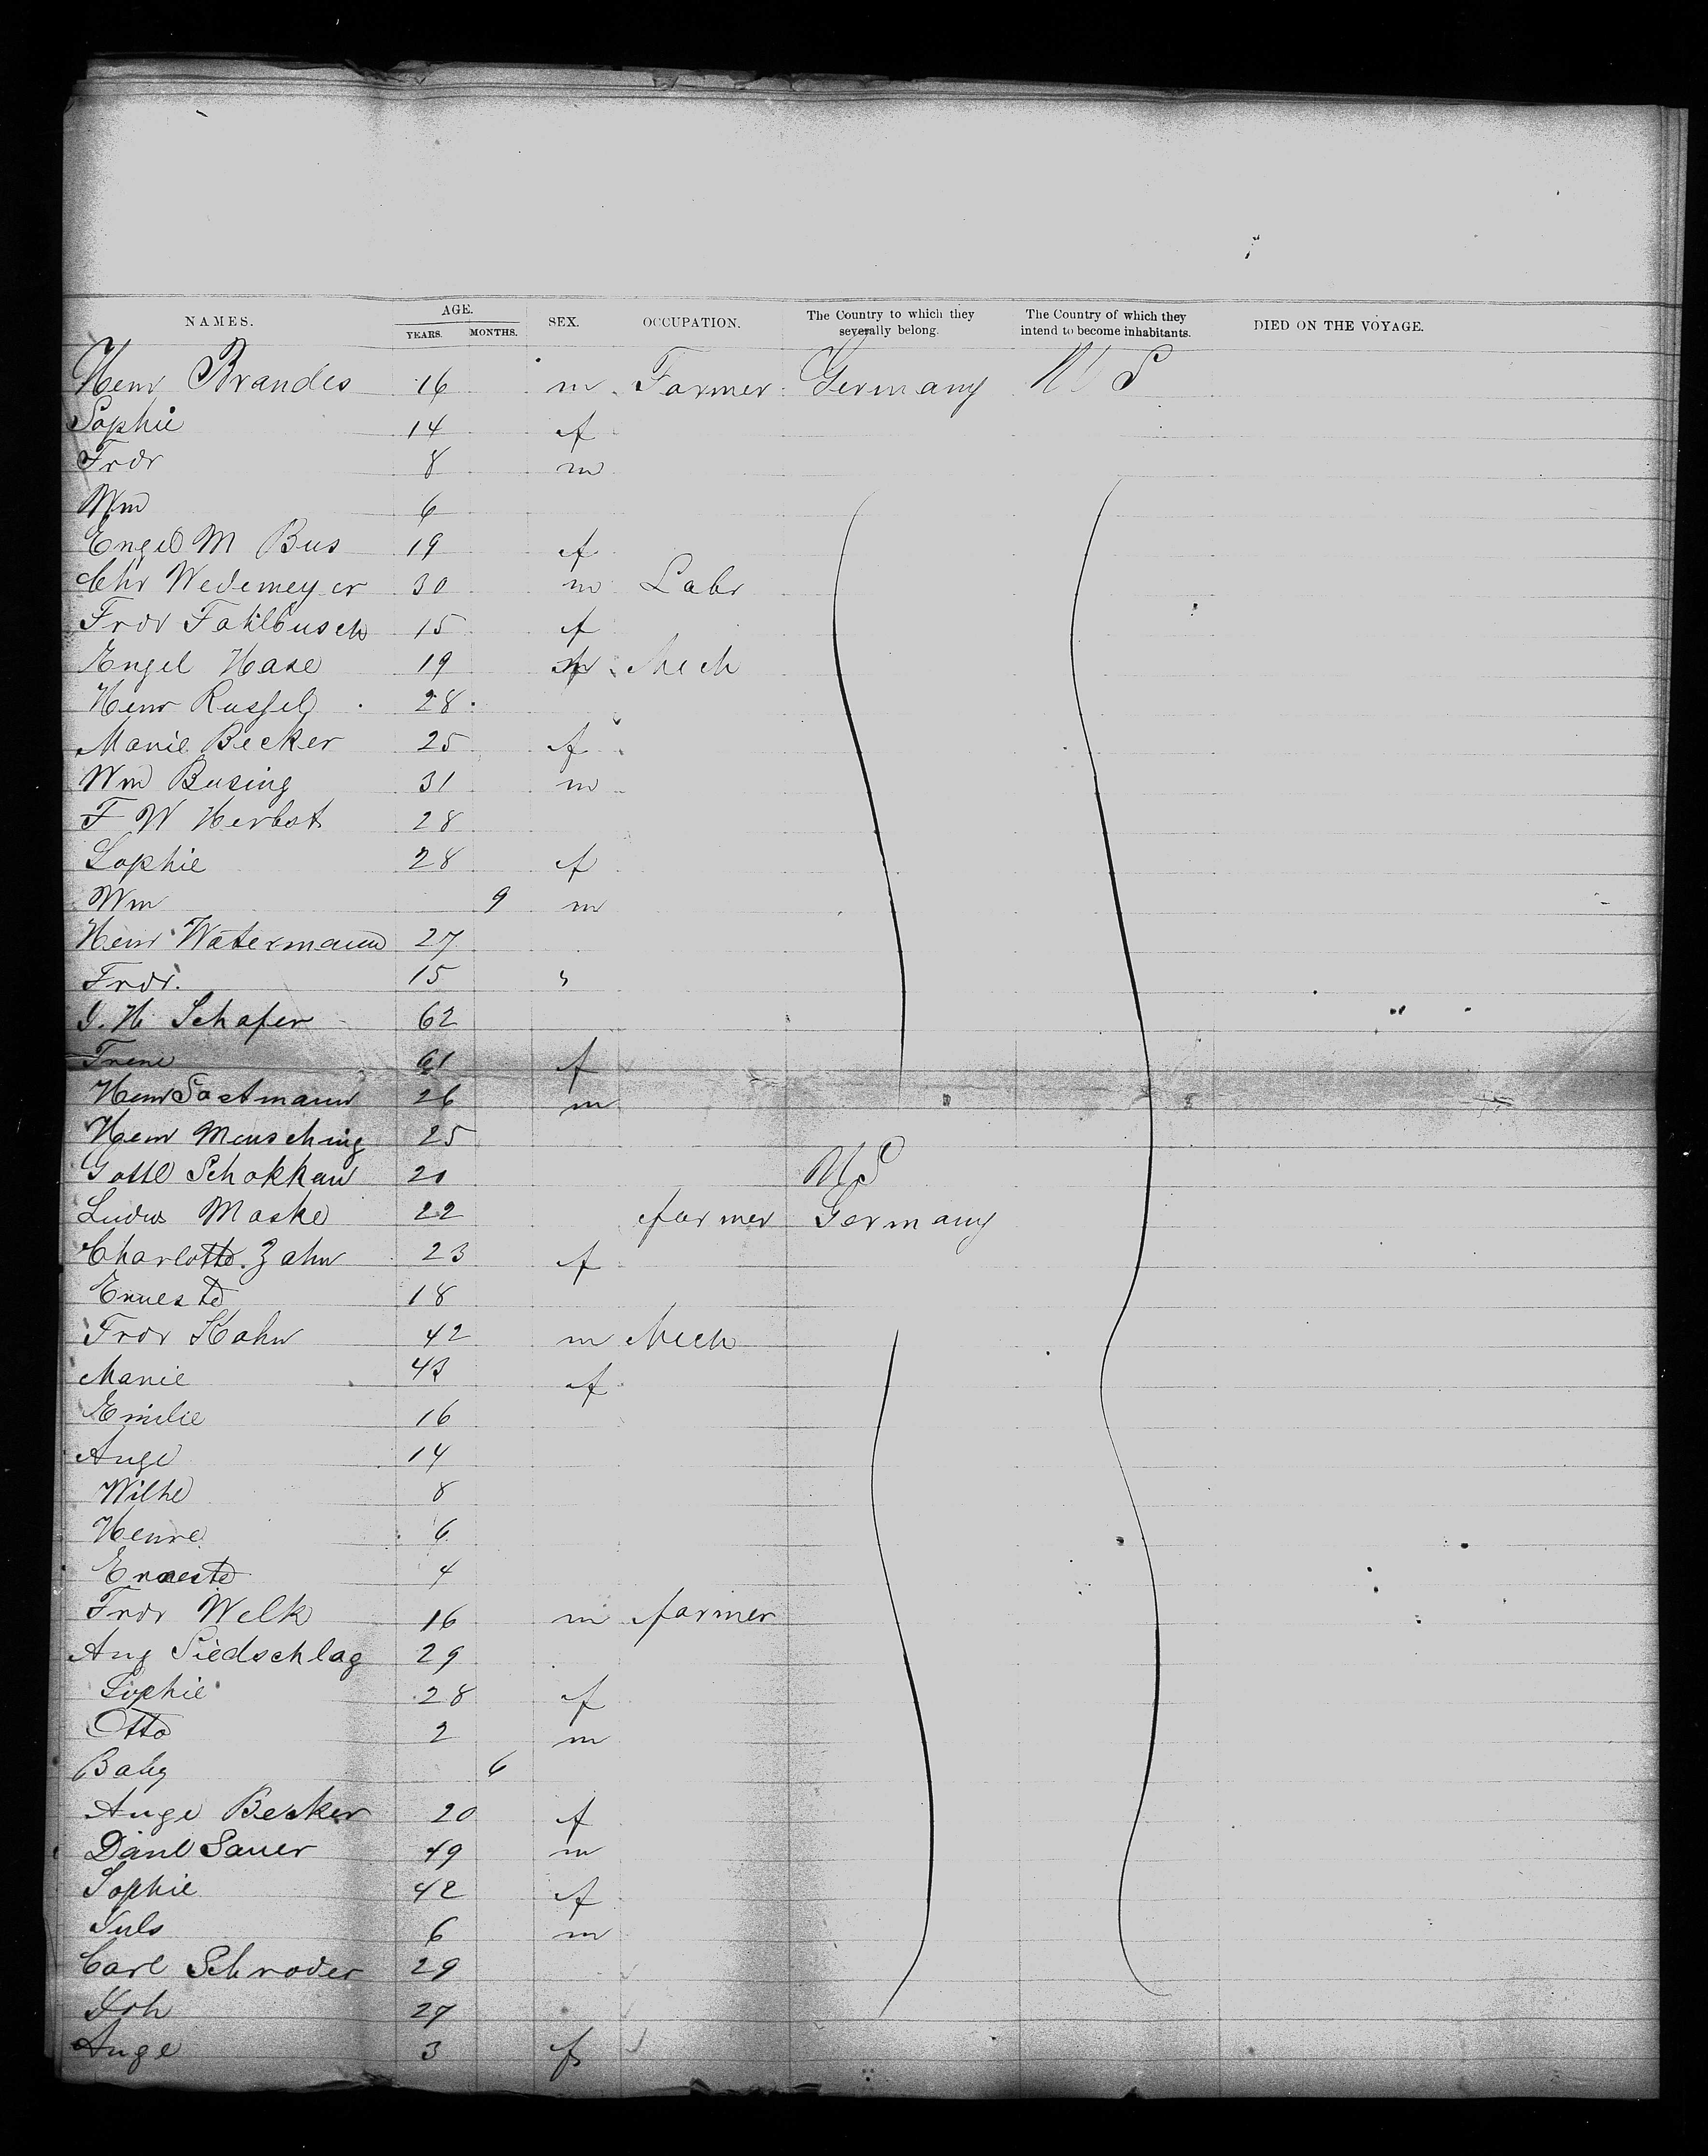 NAMES. AGE. YEARS. MONTHS. SEX. OCCUPATION. The Country to which they severally belong. The Country of which they intend to become inhabitants. DIED ON THE VOYAGE.
Henr Brandes 16 m Farmer Germany U S
Sophie 14 f
Frdr 8 m
Wm 6
Engel M Bus 19 f
Chr Wedemeyer 30 m Labr
Frdr Fahlbusch 15 f
Engel Hase 19 Mech
Henr Russel 28
Marie Becker 25 f
Wm Busing 31 m
F W Herbst 28
Sophie 28 f
Wm 9 m
Henr Watermann 27
Frdr. 15 "
J. H Schafer 62
Trene 61 f
Henr Sastmann 26 m
Henr Mensching 25
Gottl Schokkan 21 U S
Ludw Maske 22 farmer Germany
Charlotte Zahn 23 f
Erneste 18
Frdr Hahn 42 m Mech
Marie 43 f
Emilie 16
Auge 14
Wilhe 8
Henre 6
Erneste 4
Frdr Welk 16 m farmer
Aug Siedschlag 29
Sophie 28 f
Otto 2 m
Baby 6
Auge Becker 20 f
Danl Sauer 49 m
Sophie 42 f
Juls 6 m
Carl Schroder 29
Joh 27
Auge 3 f